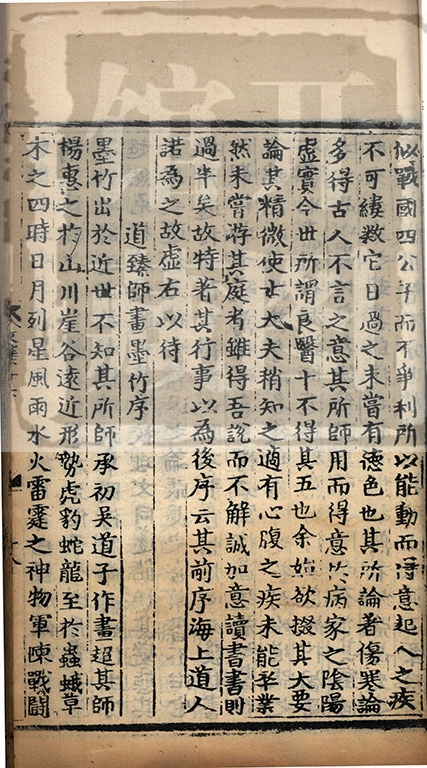 似戰國四公子而不爭利所以能動而得意起人之疾
不可縷數它日過之未嘗有德色也其所論著傷寒論
多得古人不言之意其所師用而得意於病家之陰陽
虛實今世所謂良醫十不得其五也余始欲掇其大要
論其精微使士大夫稍知之適有心腹之疾未能卒業
然未嘗游其庭者雖得吾說而不解誠加意讀書書則
過半矣故特著其行事以為後序云其前序海上道人
諾為之故虛右以待
道臻師畫墨竹序
墨竹出於近世不知其所師承初吳道子作畫超其師
楊惠之於山川崖谷遠近形勢虎豹蛇龍至於蟲蛾草
木之四時日月列星風雨水火雷霆之神物軍陳戰鬪